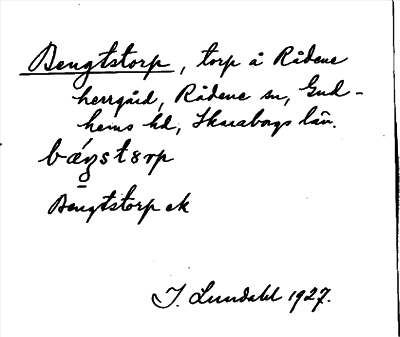 Bengtstorp, torp å Rådene
herrgård, Rådene sn, Gud-
hems hd, Skaraborgs län.
bæŋstɔrp
Bengtstorp ek
I. Lundahl 1927.